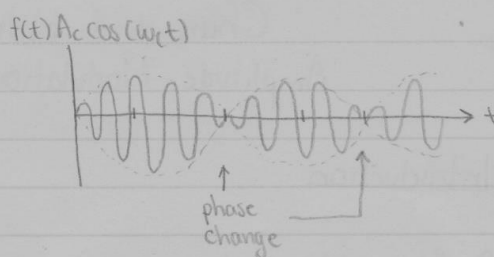 f(t) Ac cos(ωct)
t
phase
change